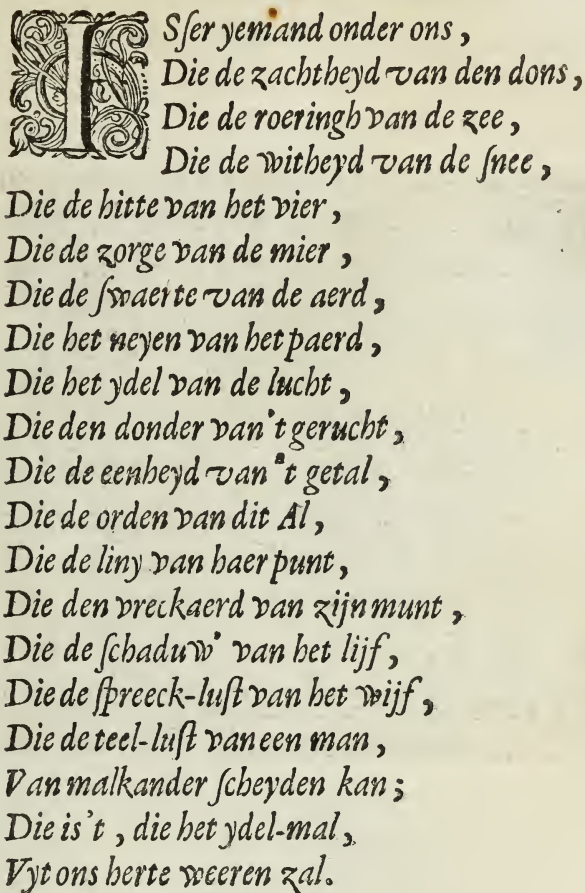 ISser yemand onder ons,
Die de zachtheyd van den dons,
Die de roeringh van de zee,
Die de witheyd van de snee,
Die de hitte van het vier,
Die de zorge van de mier,
Die de swaerte van de aerd,
Die het neyen van het paerd,
Die het ydel van de lucht,
Die den donder van 't gerucht,
Die de eenheyd van 't getal,
Die de orden van dit Al,
Die de liny van haer punt,
Die den vreckaerd van zijn munt,
Die de schaduw' van het lijf,
Die de spreeck-lust van het wijf,
Die de teel-lust van een man,
Van malkander scheyden kan;
Die is't, die het ydel-mal,
Vyt ons herte weeren zal.